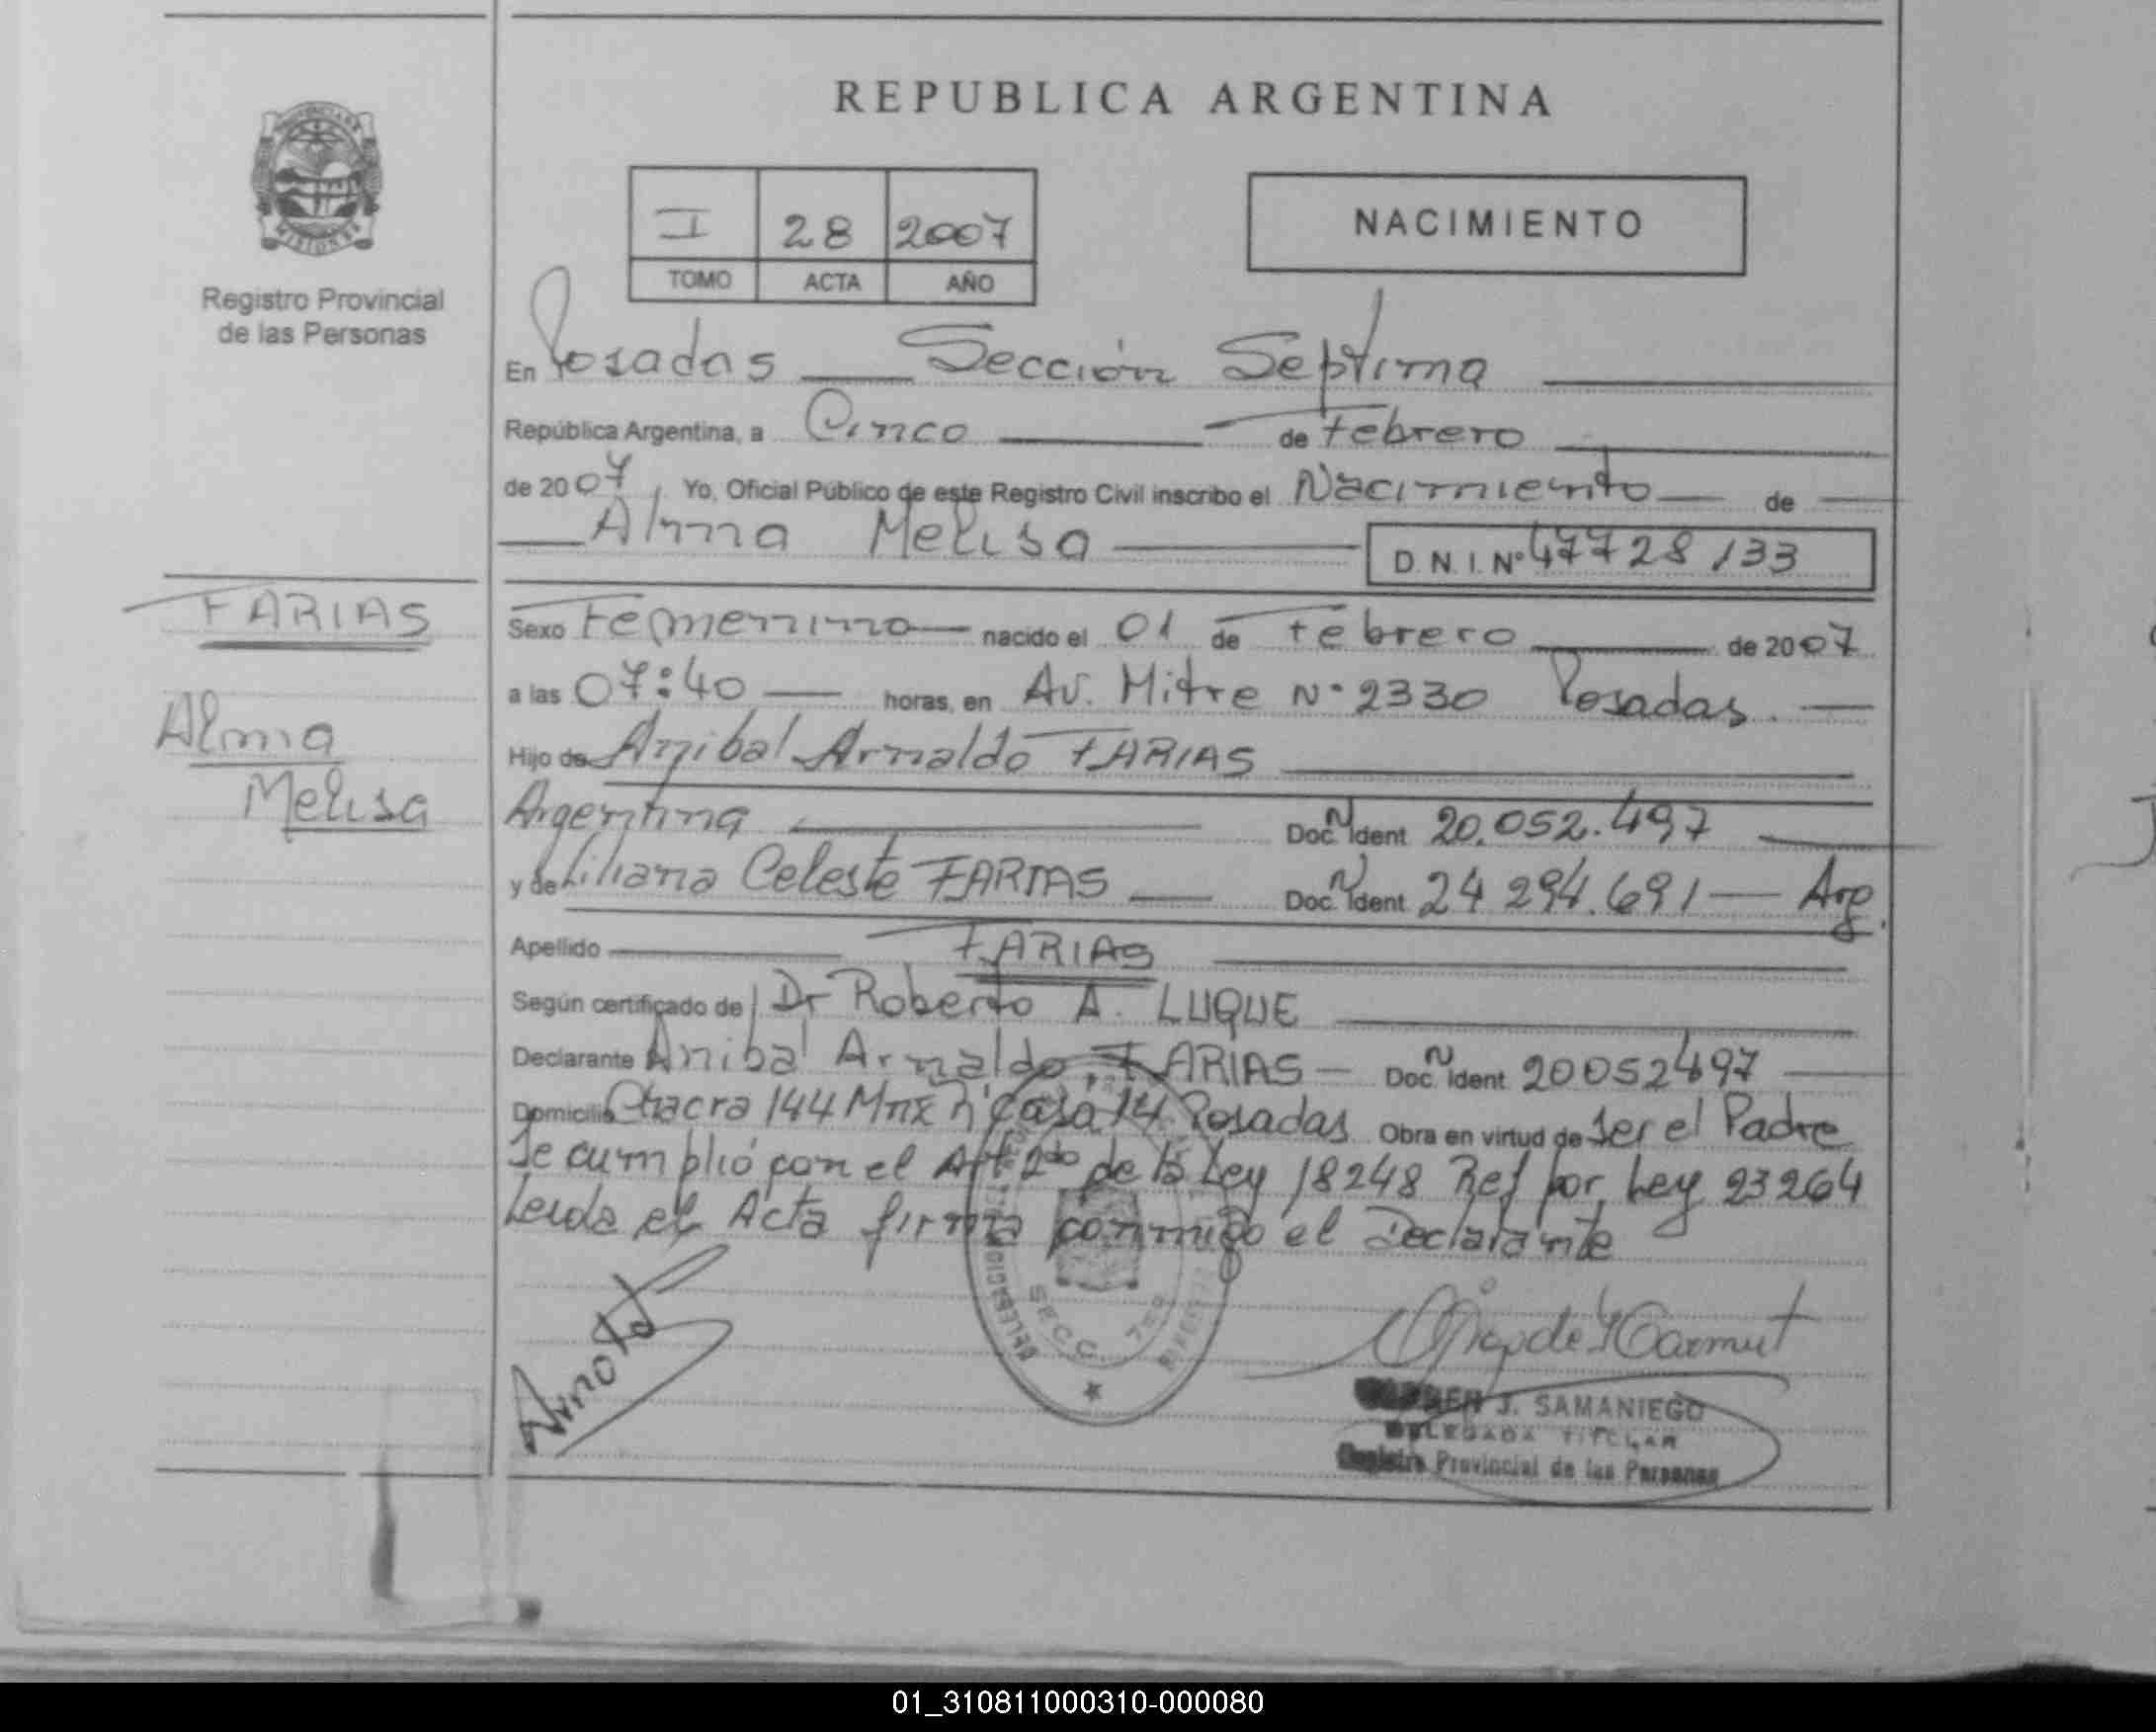 REPUBLICA ARGENTINA
MISIONES
Registro Provincial
de las Personas
I 28 2007
TOMO ACTA AÑO
NACIMIENTO
En Posadas Sección Septima
República Argentina, a Cinco de Febrero
de 2007, Yo, Oficial Público de este Registro Civil inscribo el Nacimiento de
Alma Melisa D.N.I. Nº 47728133
FARIAS
Alma
Melisa
Sexo Femenino nacido el 01 de Febrero de 2007
a las 07:40 horas, en Av. Mitre Nº 2330 Posadas.
Hijo de Anibal Arnaldo FARIAS
Argentina Doc. Ident. 20.052.497
y de Liliana Celeste FARIAS Doc. Ident. 24 294.691 Arg.
Apellido FARIAS
Según certificado de Dr Roberto A. LUQUE
Declarante Anibal Arnaldo FARIAS Doc. Ident. 20052497
Domicilio Chacra 144 Casa 14 Posadas Obra en virtud de Ser el Padre
Se cumplió con el Art 2do de la Ley 18248 Ref por Ley 23264
Leida el Acta firma conmigo el Declarante
SECC. 7ma
J. SAMANIEGO
DELEGADA TITULAR
Registro Provincial de las Personas
01_310811000310-000080